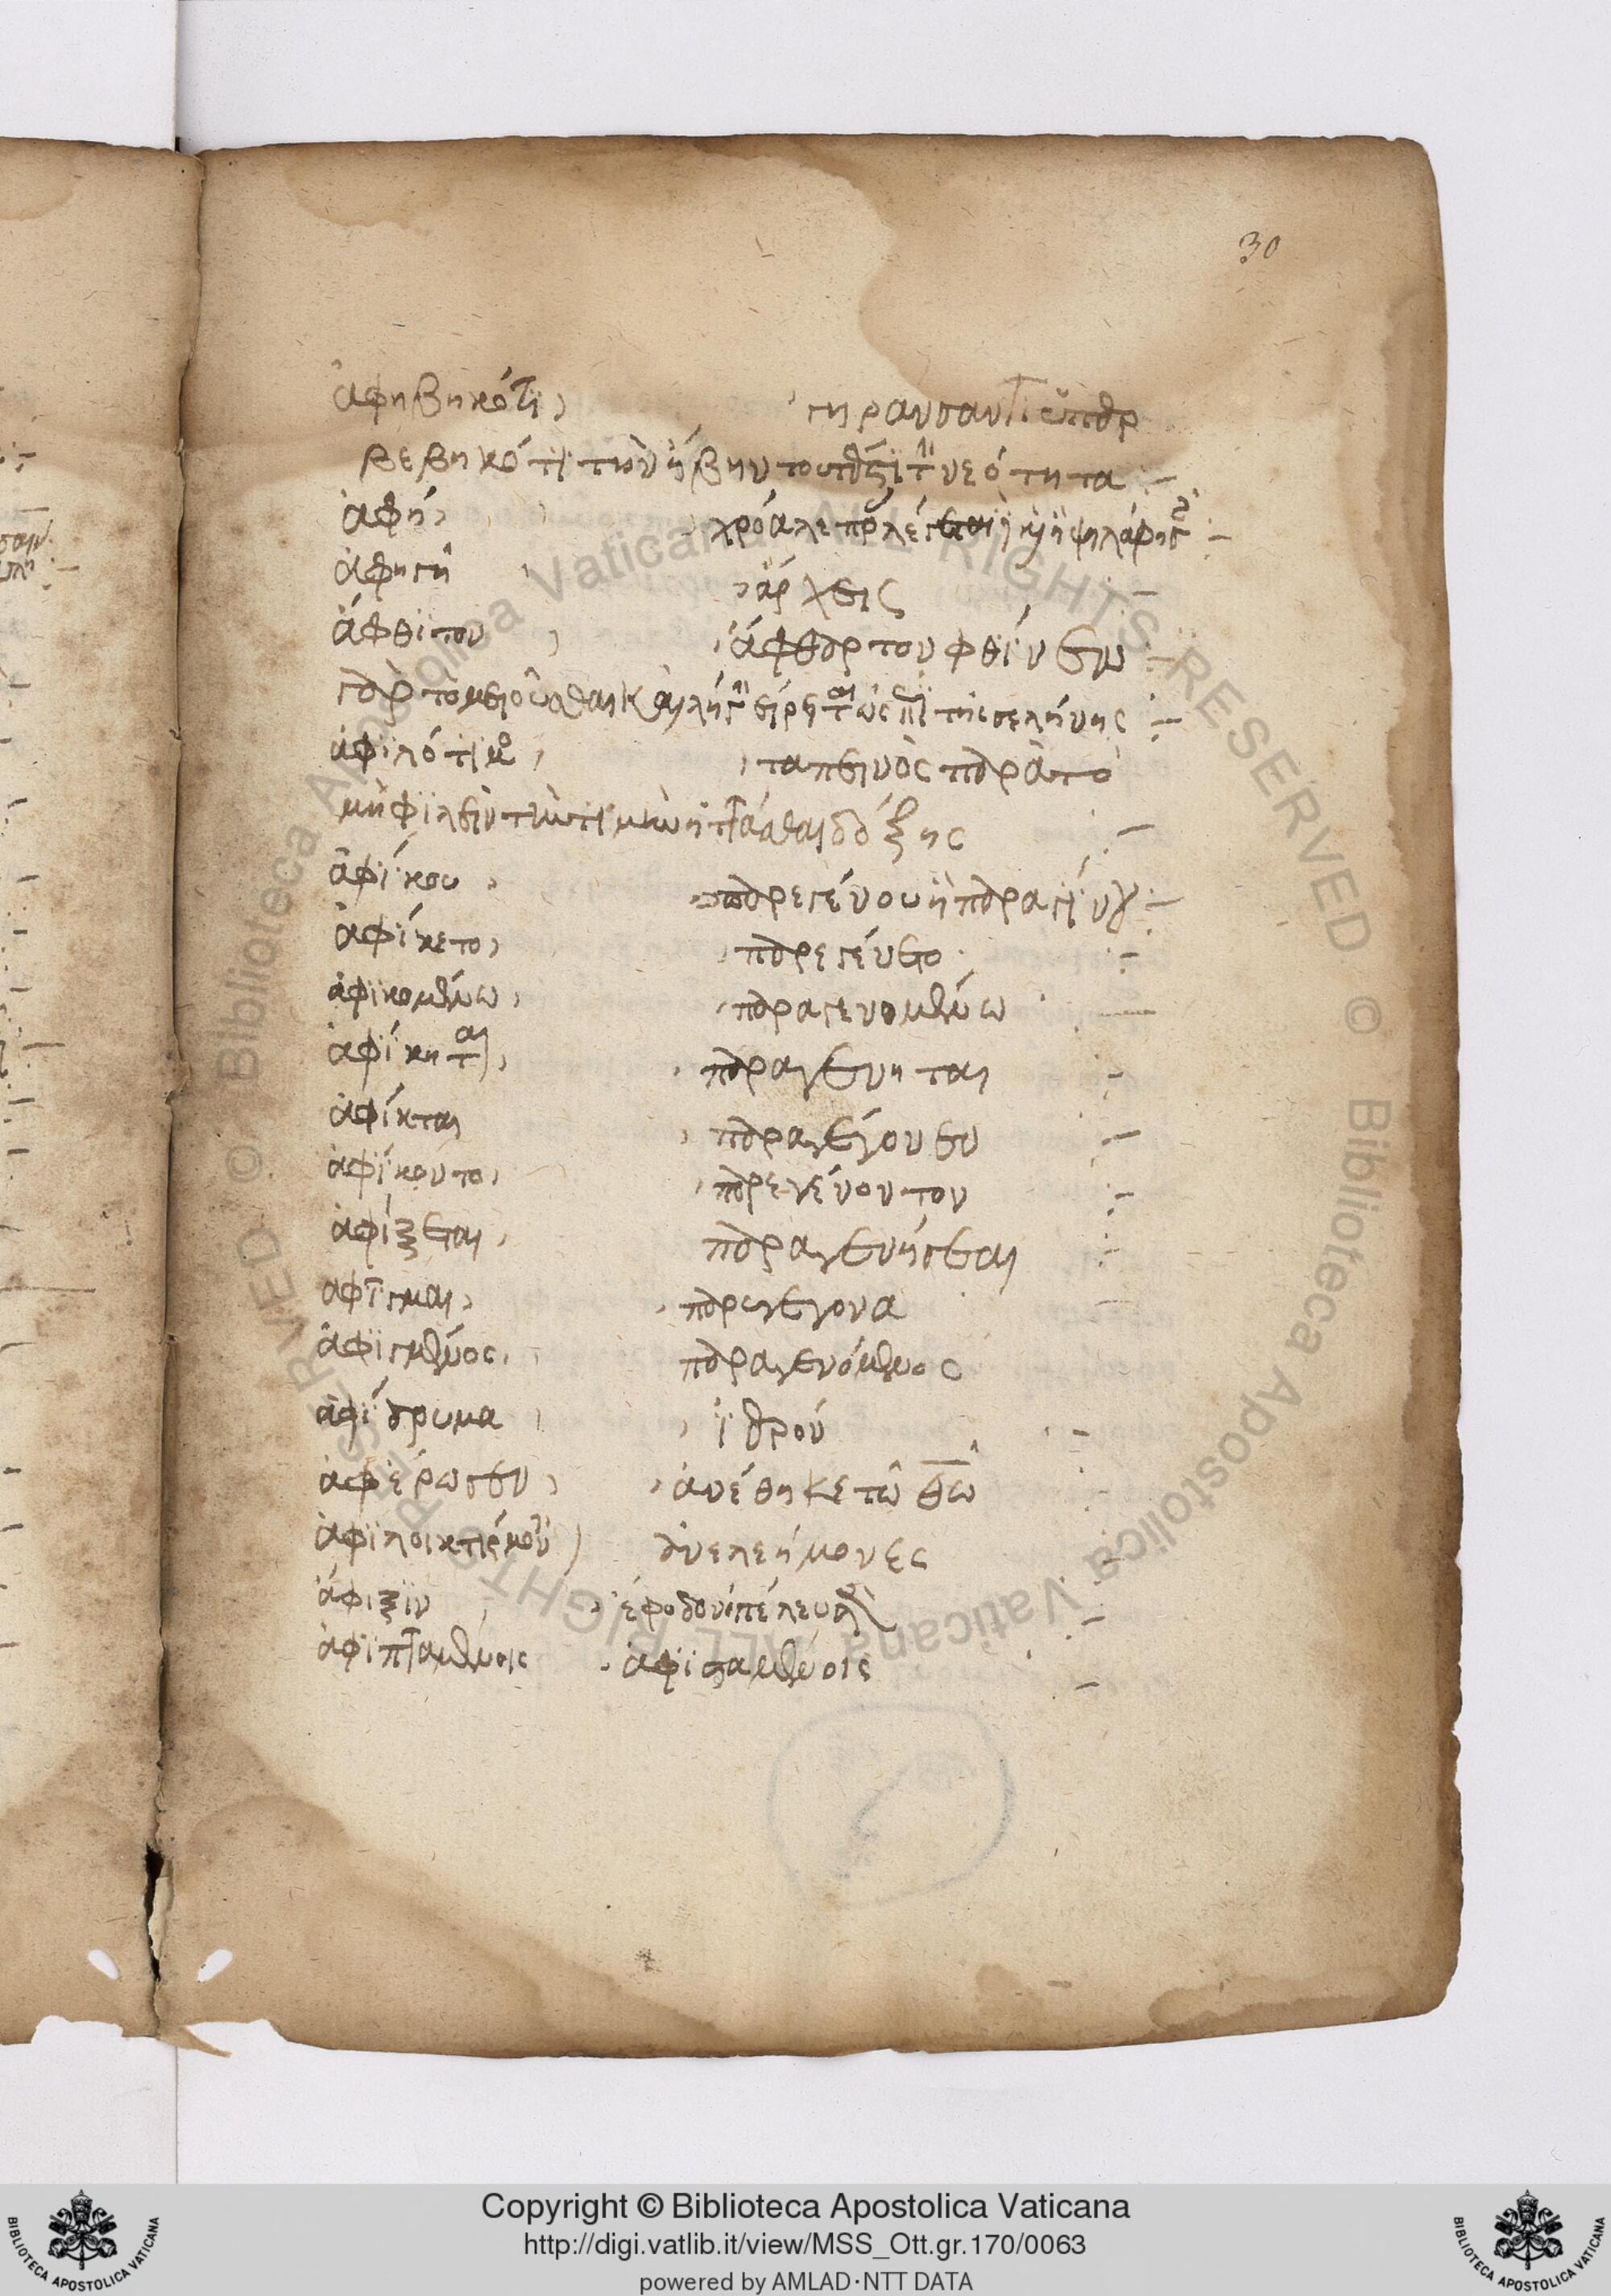 30
ἀφηβηκότι γηράσαντι ἢ παρ
βεβηκότι τὴν ἥβην τουτέστι τὴν νεότητα
ἀφή ἡ ψηλάφησις
ἀφηγῆ ἄρχεις
ἄφθιτον ἄφθαρτον φθίνειν
γὰρ τὸ μειοῦσθαι καὶ λήγειν εἴρηται ὡς ἐπὶ τῆς σελήνης
ἀφιλότιμος ταπεινὸς παρὰ τὸ
μὴ φιλεῖν τὴν τιμὴν ἢ ἱπτᾶσθαι δόξης
ἀφίκου παρεγένου ἢ παραγίνου
ἀφίκετο παρεγένετο
ἀφικομένω παραγενομένω
ἀφίκηται παραγένηται
ἀφίκται παραγέγονεν
ἀφίκοντο παρεγένοντον
ἀφίξεται παραγενήσεται
ἀφῖγμαι παραγέγονα
ἀφιγμένος παραγενόμενος
ἀφίδρυμα ἱδρον
ἀφιέρωσεν ἀνέθηκε τῶ θῶ
ἀφιλοικτίρμον ἀνελεήμονες
ἄφιξιν ἔφοδον ἐπέλευσιν
ἀφιπταμένοις ἀφισταμένοις
Copyright © Biblioteca Apostolica Vaticana
http://digi.vatlib.it/view/MSS_Ott.gr.170/0063
powered by AMLAD·NTT DATA
BIBLIOTECA APOSTOLICA VATICANA
BIBLIOTECA APOSTOLICA VATICANA
© Biblioteca Apostolica Vaticana ALL RIGHTS RESERVED
© Biblioteca Apostolica Vaticana ALL RIGHTS RESERVED